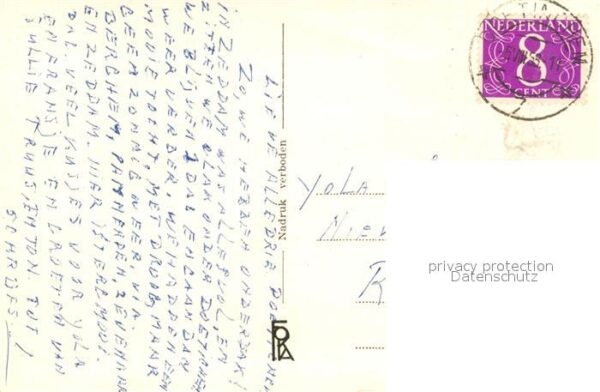 LIEVE ALLEDRIE
ZO, WE HEBBEN ONDERDAK!
IN ZEDDAM WAS ALLES VOL, EN
ZITTEN WE VLAK ONDER DOETINCHEM
WE BLIJVEN 1 DAG EN GAAN DAN
WEER VERDER, WE HADDEN EEN
MOOIE TOCHT, MET DROOG, MAAR
GEEN ZONNIG WEER, VIA
BERGHEM, PANNERDEN, ZEVENAAR
EN ZEDDAM. HIER MOOI.
DAG. VEEL KUSJES VOOR YOLA
EN FRANSJE EN GROETEN VAN
JULLIE TRUUS, EN TON. TOT
SCHRIJFS.
Nadruk verboden
YOLA
NIEUW
R
FOKA
NEDERLAND
8
CENT
privacy protection
Datenschutz